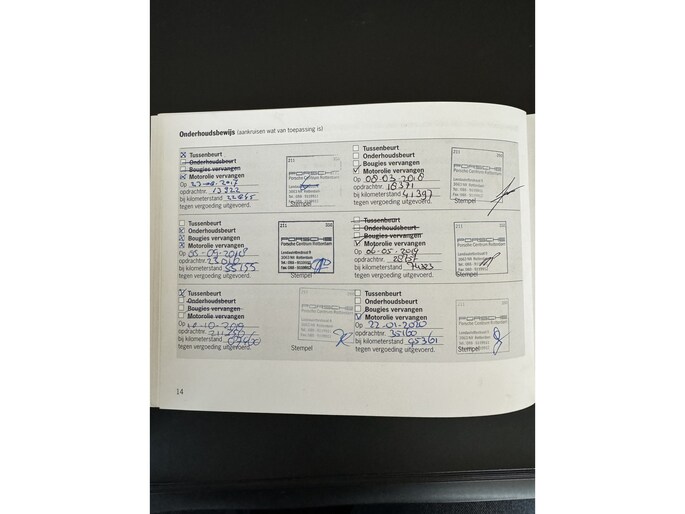 Onderhoudsbewijs (aankruisen wat van toepassing is)
Tussenbeurt
Onderhoudsbeurt
Bougies vervangen
Motorolie vervangen
Op 23-08-2017
opdrachtnr. 13722
bij kilometerstand
tegen vergoeding uitgevoerd.
211
PORSCHE
Porsche Centrum Rotterdam
Stempel
Tussenbeurt
Onderhoudsbeurt
Bougies vervangen
Motorolie vervangen
Op 08-03-2018
opdrachtnr. 18371
bij kilometerstand 41397
tegen vergoeding uitgevoerd.
PORSCHE
Porsche Centrum Rotterdam
Stempel
Tussenbeurt
Onderhoudsbeurt
Bougies vervangen
Motorolie vervangen
Op 05-09-2018
opdrachtnr.
bij kilometerstand 55155
tegen vergoeding uitgevoerd.
211
PORSCHE
Porsche Centrum Rotterdam
Stempel
Tussenbeurt
Onderhoudsbeurt
Bougies vervangen
Motorolie vervangen
Op 06-05-2019
opdrachtnr.
bij kilometerstand 74323
tegen vergoeding uitgevoerd.
211
PORSCHE
Porsche Centrum Rotterdam
Stempel
Tussenbeurt
Onderhoudsbeurt
Bougies vervangen
Motorolie vervangen
Op
opdrachtnr.
bij kilometerstand
tegen vergoeding uitgevoerd.
PORSCHE
Stempel
Tussenbeurt
Onderhoudsbeurt
Bougies vervangen
Motorolie vervangen
Op 22-01-2020
opdrachtnr. 35160
bij kilometerstand 95361
tegen vergoeding uitgevoerd.
PORSCHE
Porsche Centrum Rotterdam
Stempel
14